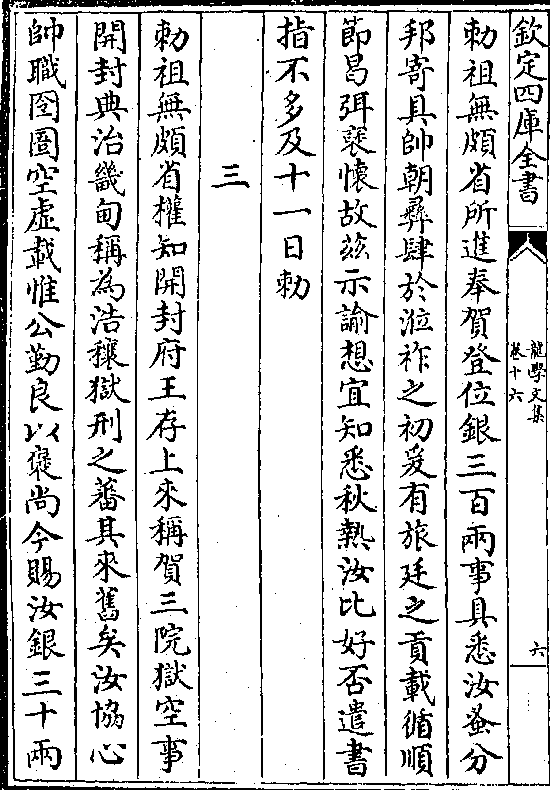 欽定四庫全書
龍學文集
卷十六
六
勅祖無頗省所進奉賀登位銀三百兩事具悉汝蚤分
邦寄具帥朝彞肆於涖祚之初爰有旅廷之貢載循順
節曷弭褱懐故兹示諭想宜知悉秋熱汝比好否遣書
指不多及十一日勅
三
勅祖無頗省權知開封府王存上來稱賀三院獄空事
開封典治畿甸稱為浩穰獄刑之蕃其來舊矣汝協心
帥職囹圄空虚載惟公勤良以襃尚今賜汝銀三十兩